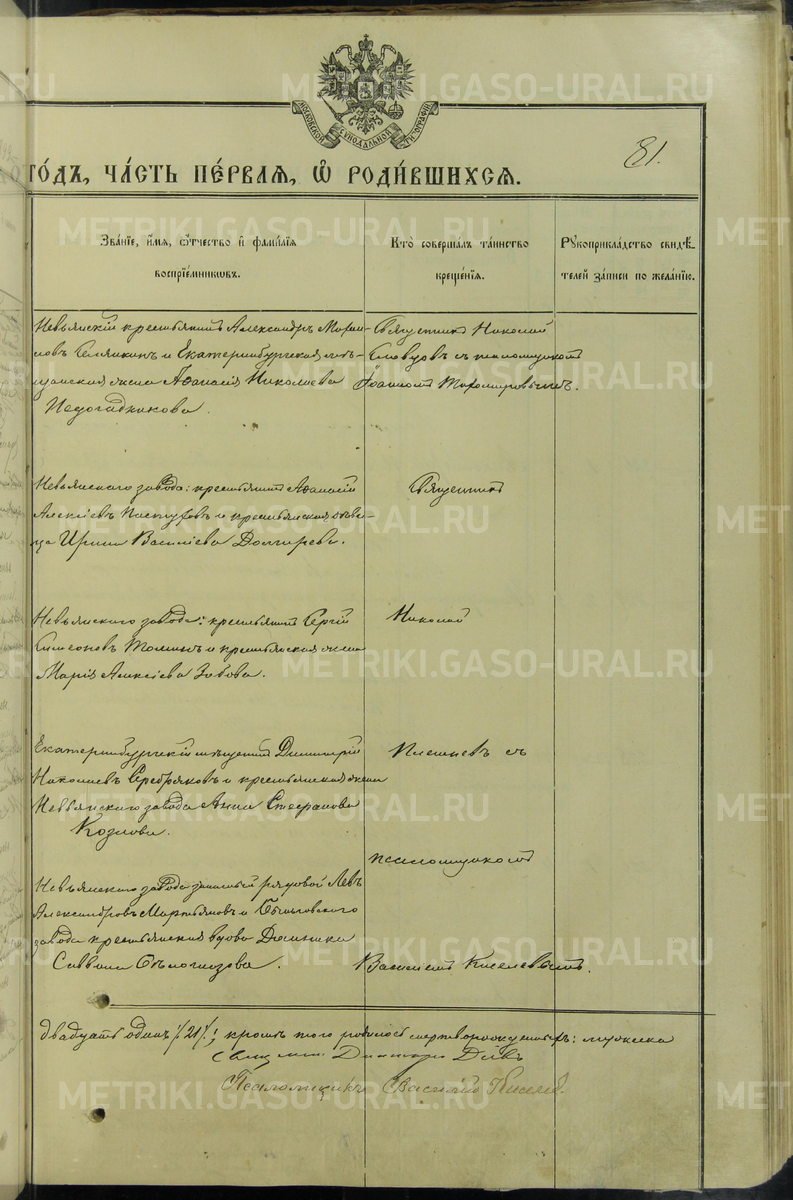 МОСКОВСКОЙ СѴНОДАЛЬНОЙ ТИПОГРАФІИ
81.
ГО́ДЪ, ЧА́СТЬ ПЕ́РВАѦ, Ѡ҆ РОДИ́ВШИХСѦ.
Зва́нїе, и҆́мѧ, ѻ҆́тчество и҆ фами́лїѧ
воспрїе́мникѡвъ.
Кто̀ соверша́лъ та́инство
креще́нїѧ.
Рꙋкоприкла́дство свидѣ́-
телей за́писи по жела́нїю.
Невьянскій крестьянинъ Александръ
и Екатеринбургская мѣ-
щанская жена Афанасія Николаева
Недогадникова.
Священникъ Николай
Словцовъ съ псаломщикомъ
Іоанномъ Тихомировымъ.
Невьянскаго завода: крестьянинъ Афанасій
Алексѣевъ Пастуховъ и крестьянская дѣви-
ца Ирина Василіева Долгирева.
Священникъ
Невьянскаго завода: крестьянинъ Сергій
Симеоновъ и крестьянская жена
Марія Алексіева Зобова.
Николай
Екатеринбургскій мѣщанинъ Димитрій
Николаевъ Серебряковъ и крестьянская жена
Невьянскаго завода Анна Стефанова
Козлова.
съ
псаломщикомъ
Невьянскаго завода запасный рядовой Левъ
Александровъ Мартьяновъ и
завода крестьянская вдова Домника
Саввина Бѣлоглазова.
Василіемъ Киселевымъ.
двадцать одинъ /21/; кромѣ того родилось мертворожденныхъ: мужска
Псаломщикъ Василій Киселевъ.